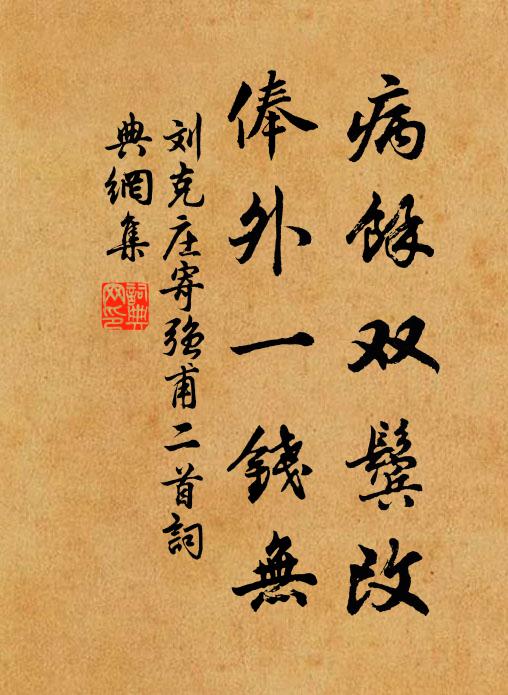 病餘双鬓改
俸外一錢無
刘克庄寄强甫二首詞
典網集
詞典網印